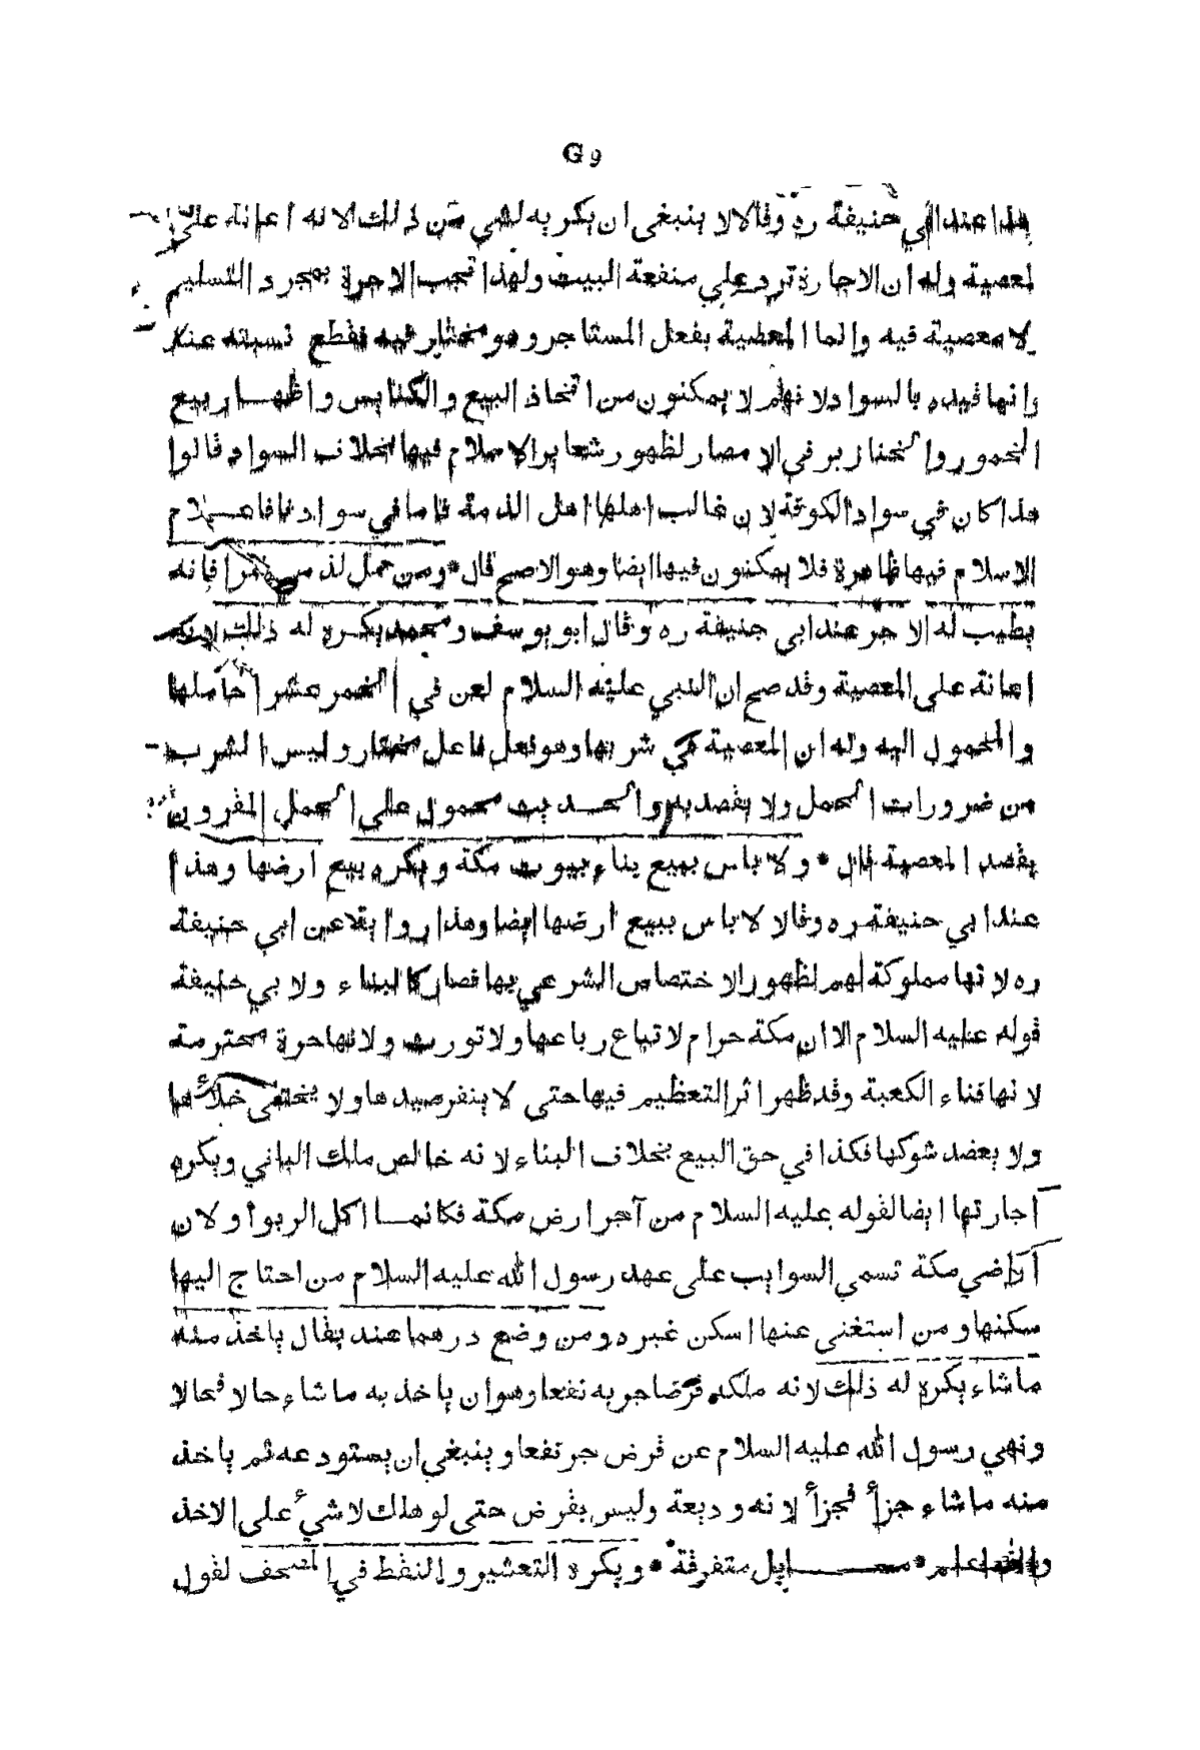 G 9
هذا عند ابي حنيفة ره وقالا لا ينبغى ان يكريه لشي من ذلك لانه اعانة على
لمعصية وله ان الاجارة ترد علي منفعة البيت ولهذا تجب الاجرة بمجرد التسليم
ولا معصية فيه وانما المعصية بفعل المستاجر وهو مختار فيه فقطع نسبته عنه
وانما قيده بالسواد لانهم لا يمكنون من اتخاذ البيع والكنايس واظهار بيع
الخمور والخنازير في الامصار لظهور شعاير الاسلام فيها بخلاف السواد قالوا
هذا كان في سواد الكوفة لان غالب اهلها اهل الذمة فاما في سوادنا فاعلام
الاسلام فيها ظاهرة فلا يمكنون فيها ايضا وهو الاصح قال * ومن حمل لذمي خمرا فانه
يطيب له الاجر عند ابي حنيفة ره وقال ابو يوسف ومحمد يكره له ذلك لانه
اعانة على المعصية وقد صح ان النبي عليه السلام لعن في الخمر عشرا حاملها
والمحمول اليه وله ان المعصية في شربها وهو فعل فاعل مختار وليس الشرب
من ضرورات الحمل ولا يقصد به والحديث محمول على الحمل المقرون
بقصد المعصية قال * ولا باس ببيع بناء بيوت مكة ويكره بيع ارضها وهذا
عند ابي حنيفة ره وقالا لا باس ببيع ارضها ايضا وهذا رواية عن ابي حنيفة
ره لانها مملوكة لهم لظهور الاختصاص الشرعي بها فصار كالبناء ولابي حنيفة
قوله عليه السلام الا ان مكة حرام لا تباع رباعها ولا تورث ولانها حرة محترمة
لانها فناء الكعبة وقد ظهر اثر التعظيم فيها حتى لا ينفر صيدها ولا يختلى خلاءها
ولا يعضد شوكها فكذا في حق البيع بخلاف البناء لانه خالص ملك الباني ويكره
اجارتها ايضا لقوله عليه السلام من آجر ارض مكة فكانما اكل الربوا ولان
اراضي مكة تسمي السوايب على عهد رسول الله عليه السلام من احتاج اليها
سكنها ومن استغنى عنها اسكن غيره ومن وضع درهما عند بقال ياخذ منه
ما شاء يكره له ذلك لانه ملكه قرضا جر به نفعا وهو ان ياخذ به ما شاء حالا فحالا
ونهي رسول الله عليه السلام عن قرض جر نفعا وينبغي ان يستودعه ثم ياخذ
منه ما شاء جزأ فجزأ لانه وديعة وليس بقرض حتى لو هلك لا شئ على الاخذ
والله اعلم * مسايل متفرقة * ويكره التعشير والنقط في المصحف لقول